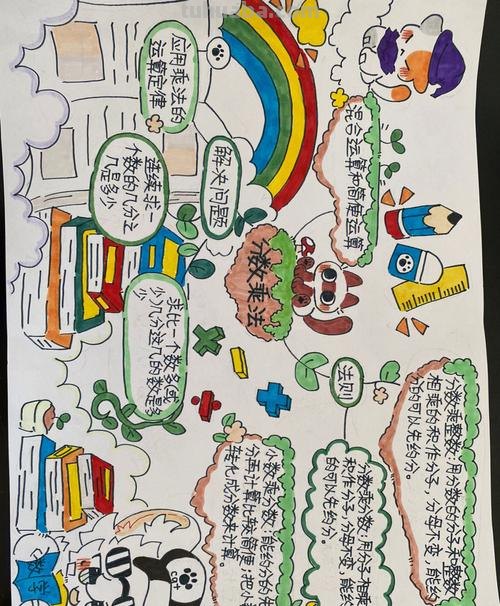 混合运算和简便运算
应用乘法的
运算定律
解决问题
连续求一
个数的几分之
几是多少
分数乘法
求比一个数多
少几分这几的数是多
少
法则
分数乘整数:用分数的分子和整数
相乘的积作分子,分母不变,能约
的可以先约分。
分数乘分数:用分子相乘
积作分子,分母不变,能约
的可以先约分。
小数乘分数:能约分的先
分再计算比较简便,把小
转化成分数来计算。
数学
cat